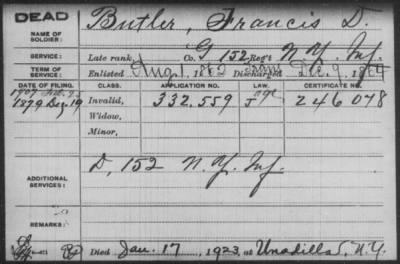 DEAD
NAME OF SOLDIER: Butler, Francis D.
SERVICE: Late rank Co. G 152 Reg't N.Y. Inf.
TERM OF SERVICE: Enlisted Aug 1, 1862 Discharged Dec. 9, 1864
DATE OF FILING. CLASS. APPLICATION NO. LAW. CERTIFICATE NO.
1907
1879 Dec 19 Invalid, 332,559 246078
Widow,
Minor,
ADDITIONAL SERVICES: D, 152 N.Y. Inf.
REMARKS:
Died Jan. 17, 1923, at Unadilla, N.Y.